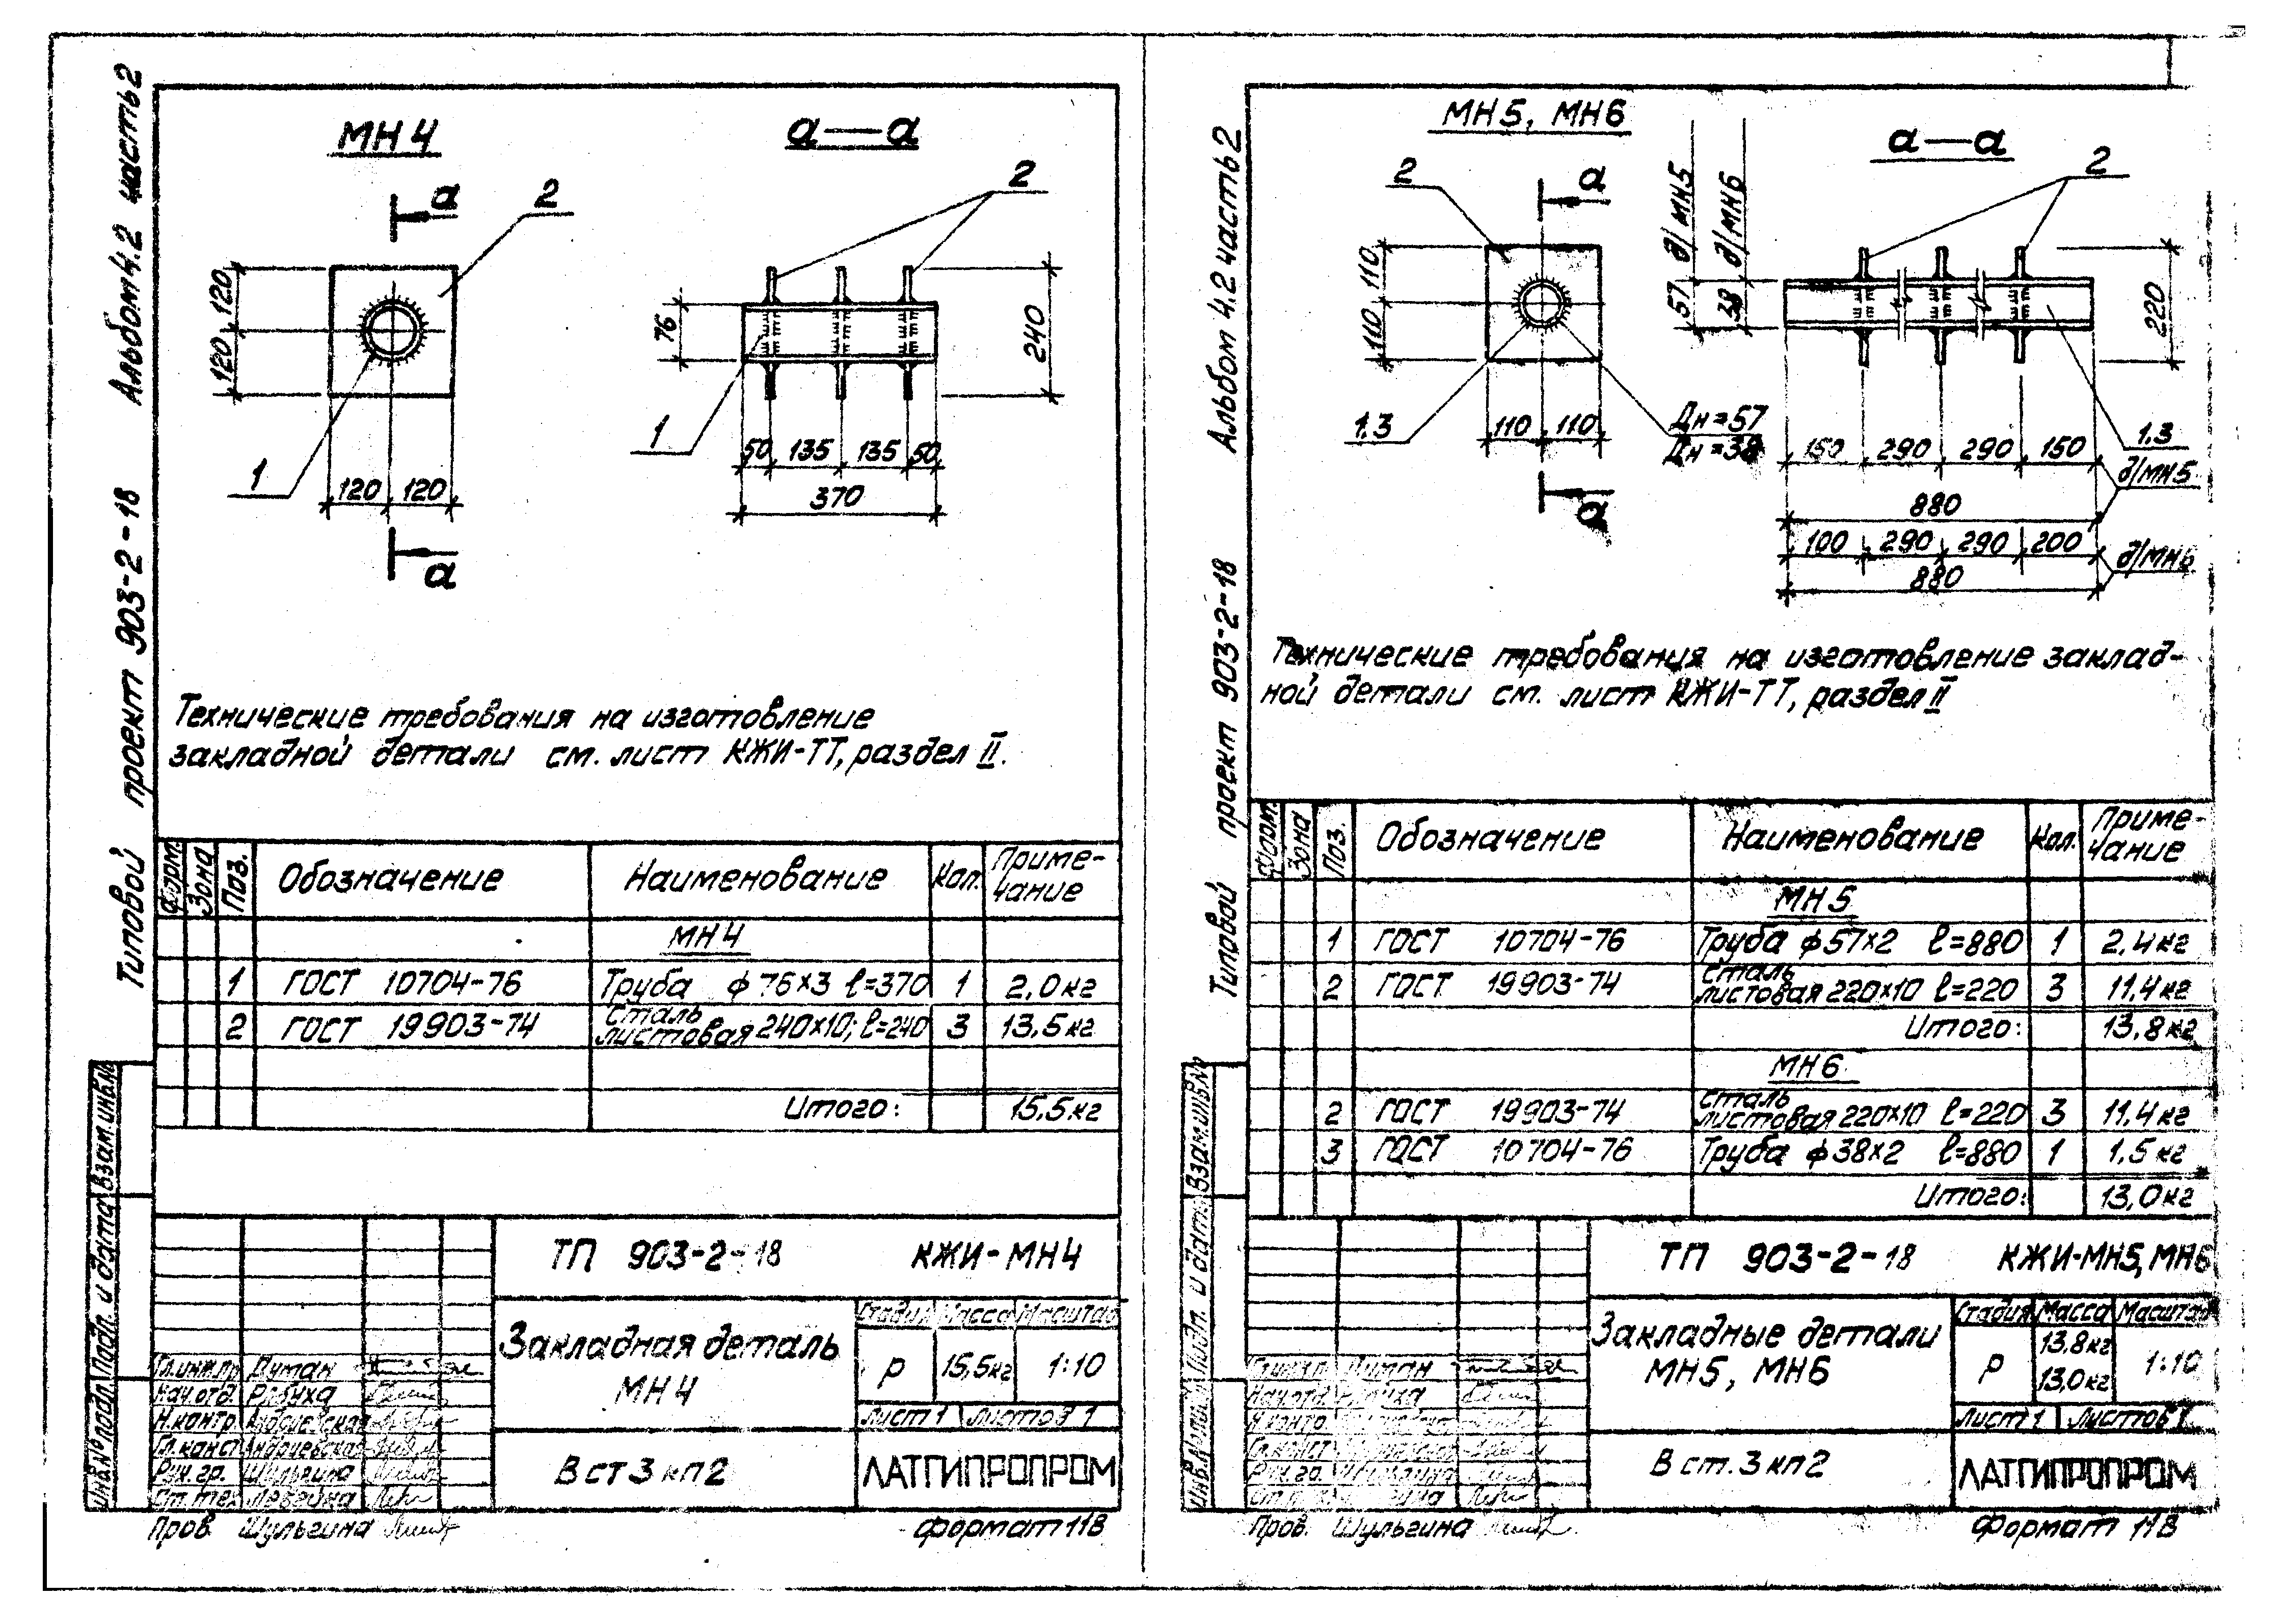 Альбом 4.2 часть 2
Типовой проект 903-2-18
МН 4
а—а
а
2
120
120
1
120 120
а
2
76
240
1
50 135 135 50
370
Технические требования на изготовление
закладной детали см. лист КЖИ-ТТ, раздел II.
Форм. Зона Поз. Обозначение Наименование Кол. Приме-
чание
МН 4
1 ГОСТ 10704-76 Труба ф 76×3 ℓ=370 1 2,0 кг
2 ГОСТ 19903-74 Сталь
листовая 240×10; ℓ=240 3 13,5 кг
Итого: 15,5 кг
Инв.№ подл. Подп. и дата Взам.инв.№
ТП 903-2-18 КЖИ-МН4
Закладная деталь
МН 4
Стадия Масса Масштаб
Р 15,5кг 1:10
Лист 1 Листов 1
Гл.инж.пр
Нач.отд.
Н.контр.
Гл.конст
Рук.гр. Шульгина
Ст.тех.
В ст 3 кп 2
ЛАТГИПРОПРОМ
Пров. Шульгина
Формат 11В
Альбом 4.2 часть 2
Типовой проект 903-2-18
МН5, МН6
а—а
2
а
110
110
1.3
110 110
Дн=57
Дн=38
а
д/МН5
д/МН6
57
38
2
220
1.3
150 290 290 150
д/МН5
880
100 290 290 200
д/МН6
880
Технические требования на изготовление заклад-
ной детали см. лист КЖИ-ТТ, раздел II
Форм. Зона Поз. Обозначение Наименование Кол. Приме-
чание
МН5
1 ГОСТ 10704-76 Труба ф 57×2 ℓ=880 1 2,4 кг
2 ГОСТ 19903-74 Сталь
листовая 220×10 ℓ=220 3 11,4 кг
Итого: 13,8 кг
МН6
2 ГОСТ 19903-74 Сталь
листовая 220×10 ℓ=220 3 11,4 кг
3 ГОСТ 10704-76 Труба ф 38×2 ℓ=880 1 1,5 кг
Итого: 13,0 кг
Инв.№ подл. Подп. и дата Взам.инв.№
ТП 903-2-18 КЖИ-МН5, МН6
Закладные детали
МН5, МН6
Стадия Масса Масштаб
Р 13,8кг 1:10
13,0кг
Лист 1 Листов 1
В ст. 3 кп 2
ЛАТГИПРОПРОМ
Пров. Шульгина
Формат 11В